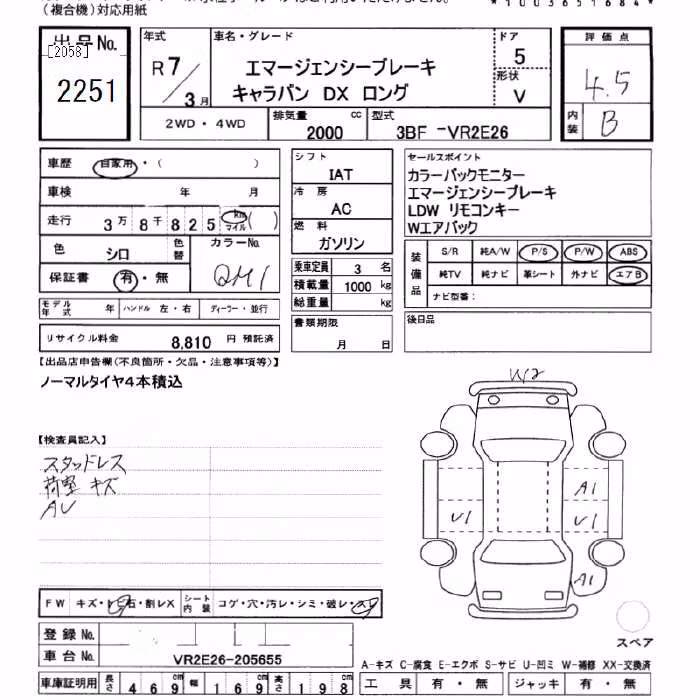 (複合機)対応用紙
*1003651684*
出品No.
[2058]
2251
年式
R7/3月
車名・グレード
エマージェンシーブレーキ
キャラバン DX ロング
ドア
5
形状
V
評価点
4.5
内装
B
2WD・4WD
排気量
2000 cc
型式
3BF -VR2E26
車歴
自家用・( )
車検
年 月
走行
3万8千825 km マイル( )
色
シロ
色替
カラーNo.
QM1
保証書
有・無
モデル年式
年
ハンドル 左・右
ディーラー・並行
リサイクル料金
8,810 円 預託済
シフト
IAT
冷房
AC
燃料
ガソリン
乗車定員 3 名
積載量 1000 kg
総重量 kg
書類期限
月 日
セールスポイント
カラーバックモニター
エマージェンシーブレーキ
LDW リモコンキー
Wエアバック
装備品
S/R 純A/W P/S P/W ABS
純TV 純ナビ 革シート 外ナビ エアB
ナビ型番:
後日品
【出品店申告欄(不良箇所・欠品・注意事項等)】
ノーマルタイヤ4本積込
【検査員記入】
スタッドレス
荷室 キズ
AU
W2
A1
U1
U1
A1
スペア
FW
キズ・トビ石・割レX
シート内装
コゲ・穴・汚レ・シミ・破レ・スレ
登録No.
車台No.
VR2E26-205655
車庫証明用
長さ 469 cm
幅 169 cm
高さ 198 cm
A-キズ C-腐食 E-エクボ S-サビ U-凹ミ W-補修 XX-交換済
工具 有・無
ジャッキ 有・無